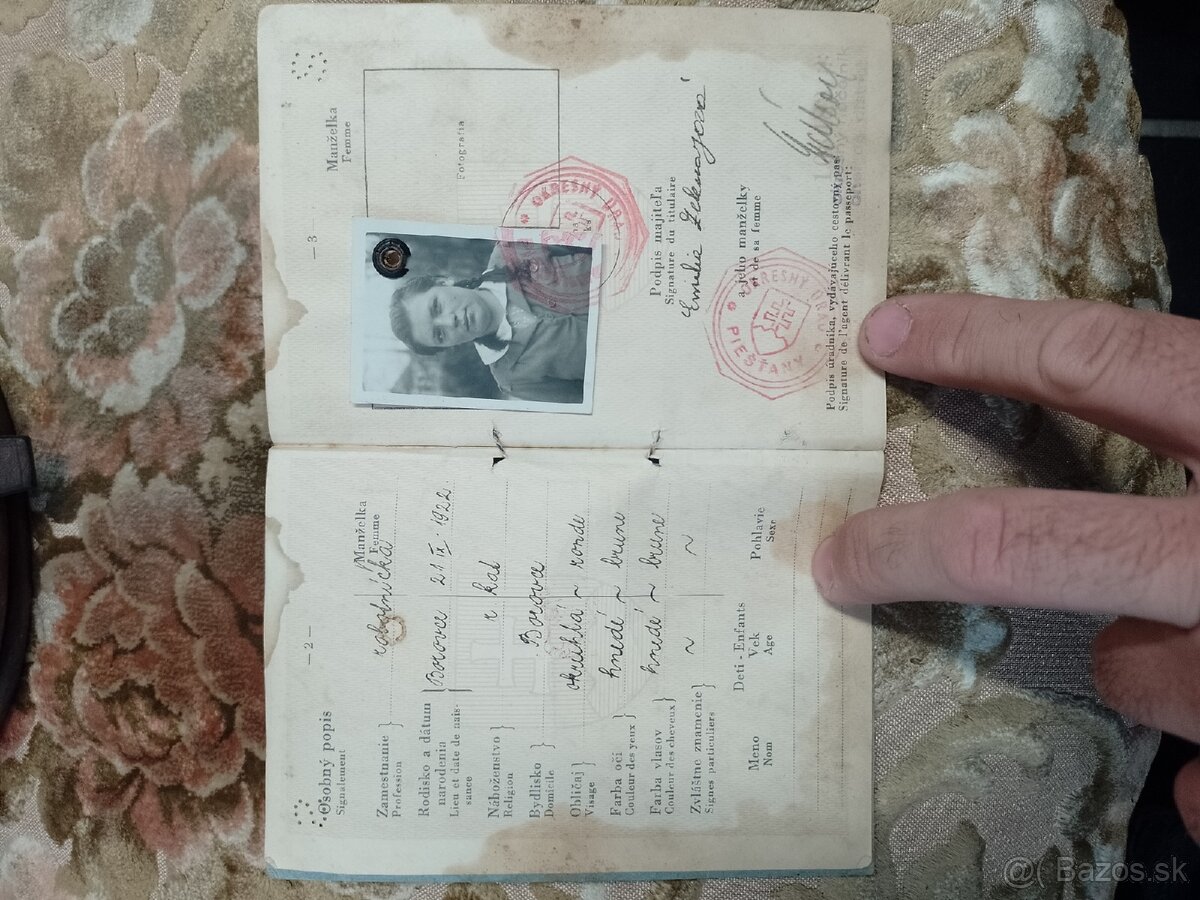 — 2 —
Osobný popis
Signalement
Manželka
Femme
Zamestnanie
Profession
robotníčka
Rodisko a dátum
narodenia
Lieu et date de nais-
sance
Borovce 21 IX. 1922.
Náboženstvo
Religion
r kat
Bydlisko
Domicile
Borovce
Obličaj
Visage
okrúhlá ~ ronde
Farba očí
Couleur des yeux
hnedé ~ brune
Farba vlasov
Couleur des cheveux
hnedé ~ brune
Zvláštne znamenie
Signes particuliers
~ ~
Deti - Enfants
Meno
Nom
Vek
Age
Pohlavie
Sexe
— 3 —
Manželka
Femme
Fotografia
OKRESNÝ ÚRAD
Podpis majiteľa
Signature du titulaire
Emilie
a jeho manželky
et de sa femme
OKRESNÝ ÚRAD
PIEŠŤANY
Podpis úradníka, vydávajúceho cestovný pas
Signature de l'agent délivrant le passeport:
@( Bazos.sk